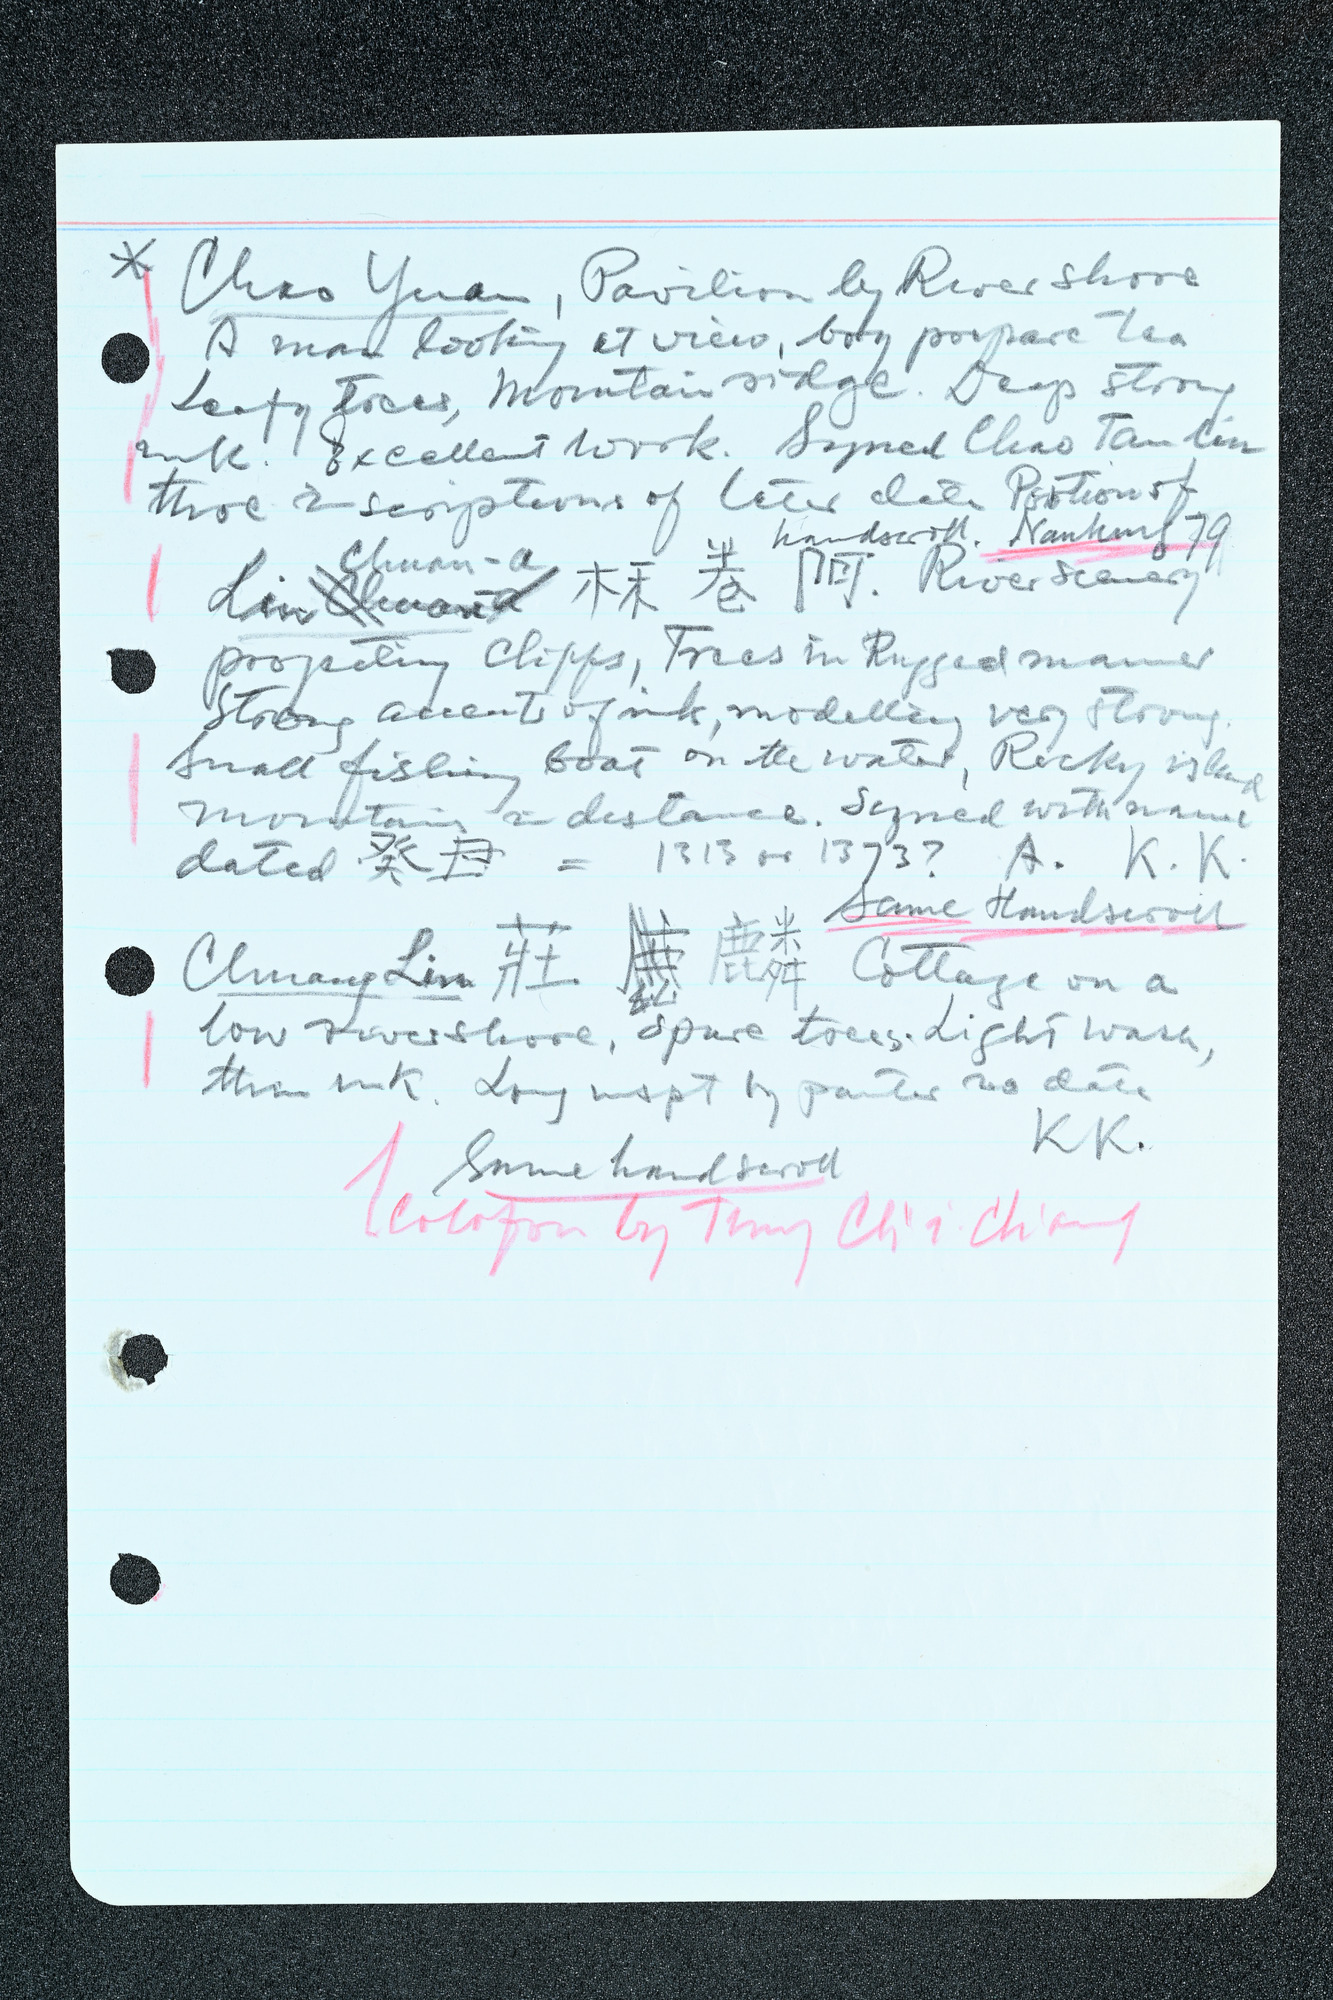 * Chao Yuan, Pavilion by River shore
A man looking at view, boy prepare tea
leafy trees, Mountain ridge. Deep strong
ink. Excellent work. Signed Chao Tan lin
three inscriptions of later date Portion of
handscroll. Nanking 79
Chuan-a
Lin 林 卷 阿. River scenery
projecting cliffs, Trees in Rugged manner
Strong accents of ink, modelling very strong.
Small fishing boat on the water, Rocky island
mountains in distance. Signed with name
dated 癸丑 = 1313 or 1373? A. K. K.
Same Handscroll
Chuang Lin 莊 麟 Cottage on a
low rivershore, spare trees. Light wash,
thin ink. Long inspt by painter no date
KK.
Same handscroll
Colofon by Tung Ch'i-ch'ang